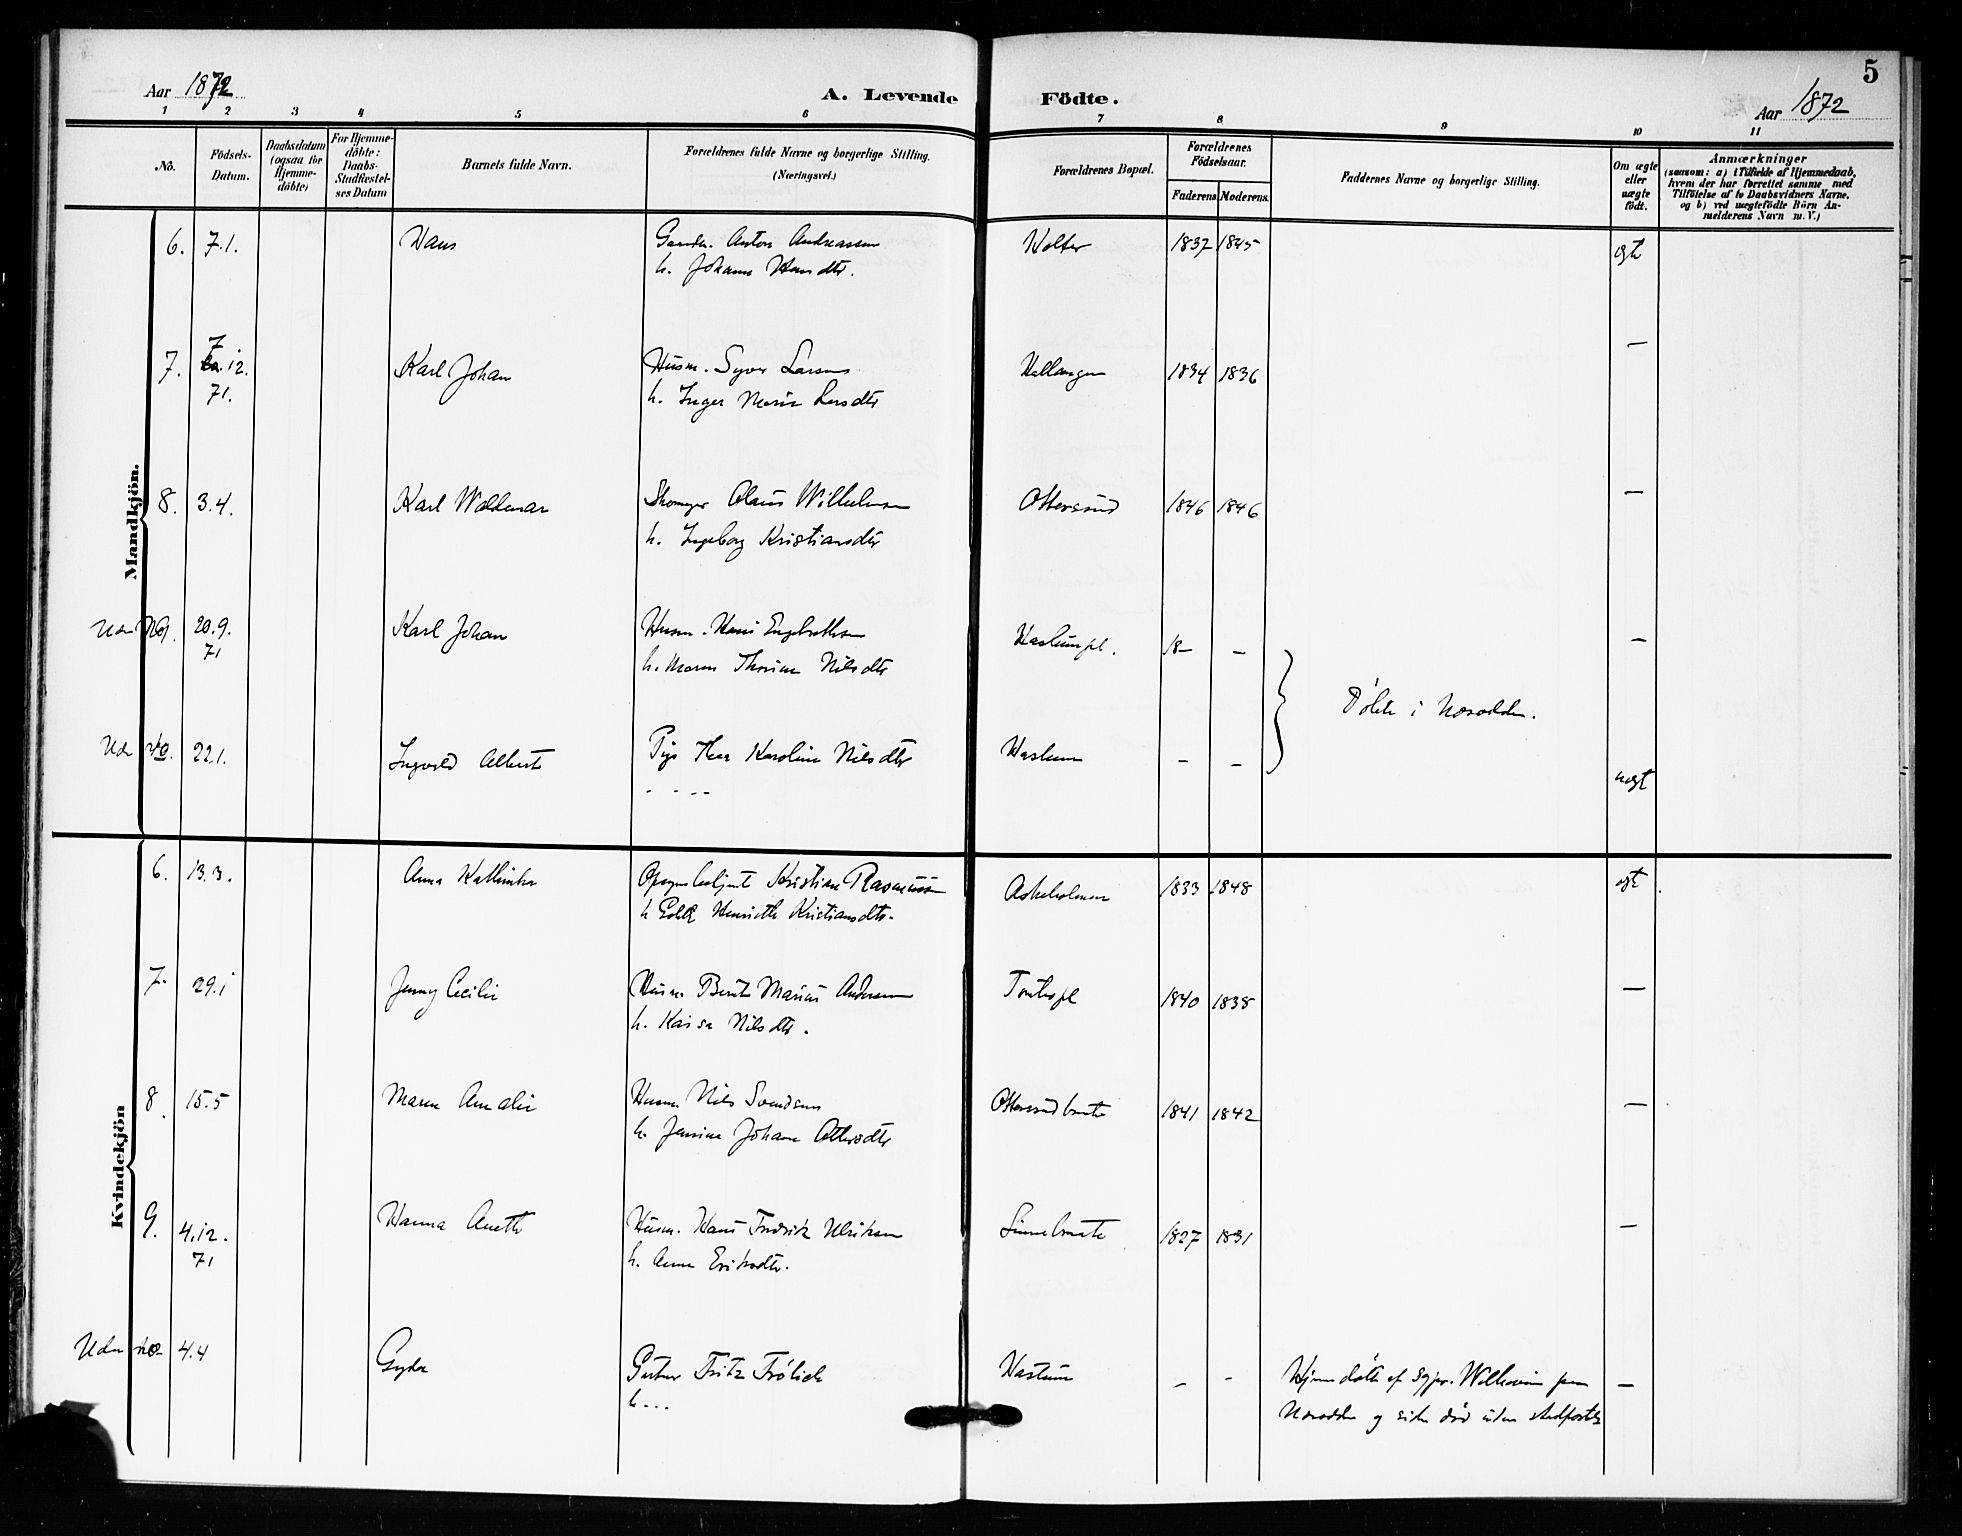 5
Aar 1872
A. Levende Födte.
Aar 1872
1 2 3 4 5 6 7 8 9 10 11
No.
Födsels-Datum.
Daabsdatum (ogsaa for Hjemme-döbte)
For Hjemme-döbte: Daabs-Stadfæstel-ses Datum
Barnets fulde Navn.
Forældrenes fulde Navne og borgerlige Stilling. (Næringsvei.)
Forældrenes Bopæl.
Forældrenes Födselsaar.
Faderens. Moderens.
Faddernes Navne og borgerlige Stilling.
Om ægte eller uægte födt.
Anmærkninger
(saasom: a) i Tilfælde af Hjemmedaab,
hvem der har forrettet samme med
Tilföielse af to Daabsvidners Navne,
og b) ved uægtefödte Börn An-
melderens Navn m. V.)
Mandkjön.
6. 7.1. Hans Gaardm. Anton Andreassen Holter 1837 1845 egte
h. Johanne Hansdtr.
7. 7.12. 71. Karl Johan Husm. Syver Larsen Hallangen 1834 1836 —
h. Inger Marie Larsdtr
8. 3.4. Karl Waldemar Skomager Olaus Wilhelmsen Ottersund 1846 1846 —
h. Ingeborg Kristiansdtr
Uden No 9. 20.9. 71 Karl Johan Husm. Hans Engebrethsen Haslumpl. 18— — —
h. Maren Thorine Nilsdtr
Döbte i Næsodden.
Uden No 10. 22.1. Ingvald Alberth Pige Thea Karoline Nilsdtr Haslum — — uegte
- - - -
Kvindekjön
6. 13.3. Anna Kathinka Opsynsbetjent Kristian Rasmussen Askeholmen 1833 1848 egte
h. Henriette Kristiansdtr.
7. 29.1 Jenny Cecilie Husm. Bernt Marius Andersen 1840 1838 —
h. Kaisa Nilsdtr.
8. 15.5 Maren Amalie Husm. Nils Svendsen Ottersundbraate 1841 1842 —
h. Jensine Johanne Ottersdtr
9. 4.12. 71 Hanna Anette Husm. Hans Fredrik Ulriksen 1827 1831 —
h. Anne Eriksdtr.
Uden No 4.4 Gyda Fritz Frölich Haslum — - Hjemmedöbt af Sgpr. Wilhelm fra —
h. - - - Næsodden og siden död uden stadfæstelse